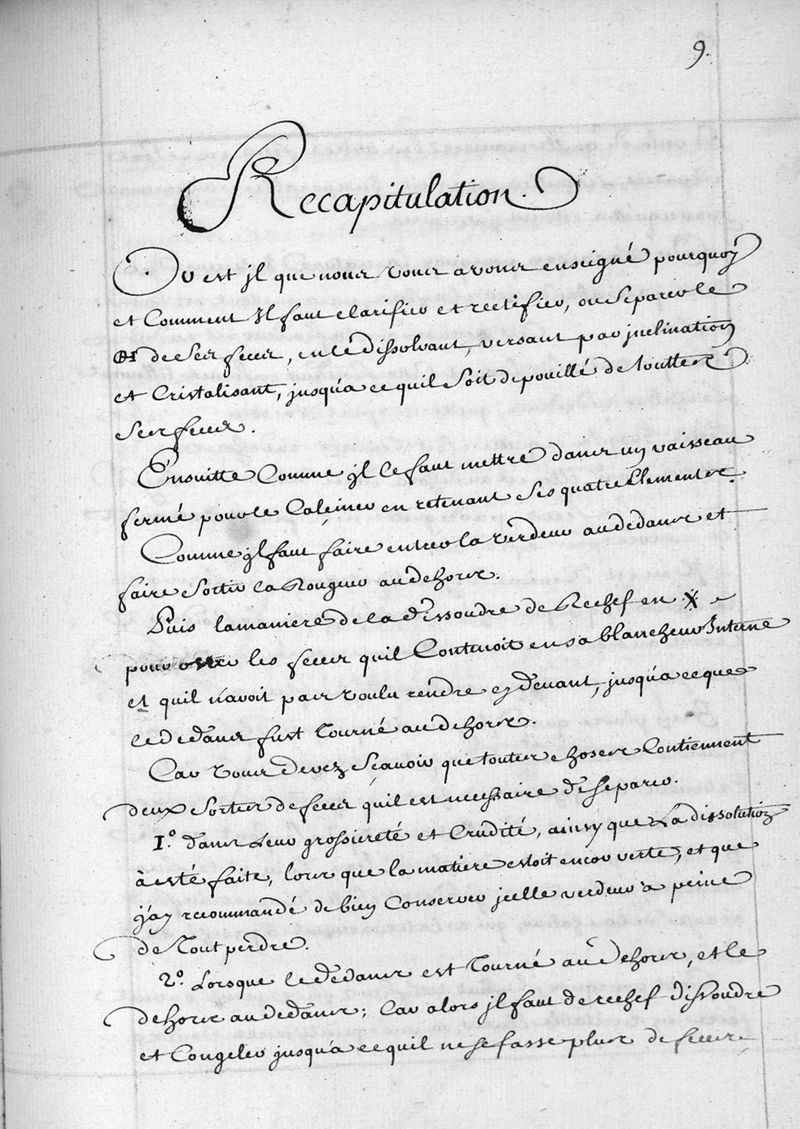 9.
Recapitulation.
Ou est jl que nous vous avons enseigné pourquoy
et Comment Il faut clarifier et rectifier, ou Separer le
de Ses feces, en le dissolvant, versant par jnclination
et Cristalisant, jusqu'a ce quil Soit depouillé de touttes
Ses feces.
Ensuitte Comme jl le faut mettre dans un vaisseau
fermé pour le Calciner en retenant Ses quatre Elements.
Comme jl faut faire entrer la verdeur au dedans et
faire Sortir la Rougeur au dehors.
Puis la maniere de la dissoudre de Rechef en
pour oster les feces quil Contenoit en sa blancheur Interne
et quil n'avoit pas voulu rendre cy devant, jusqu'a ce que
le dedans fust Tourné au dehors.
Car vous devez Sçavoir que toutes choses Contiennent
deux Sortes de feces quil est necessaire de Separer.
I.º dans Leur grossiereté et Crudité, ainsy que La dissolution
à esté faite, lors que la matiere estoit encor verte, et que
j'ay recommandé de bien Conserver jcelle verdeur a peine
de Tout perdre.
2.º Lorsque le dedans est Tourné au dehors, et le
dehors au dedans; Car alors jl faut de rechef dissoudre
et Congeler jusqu'a ce quil ne se fasse plus de feces